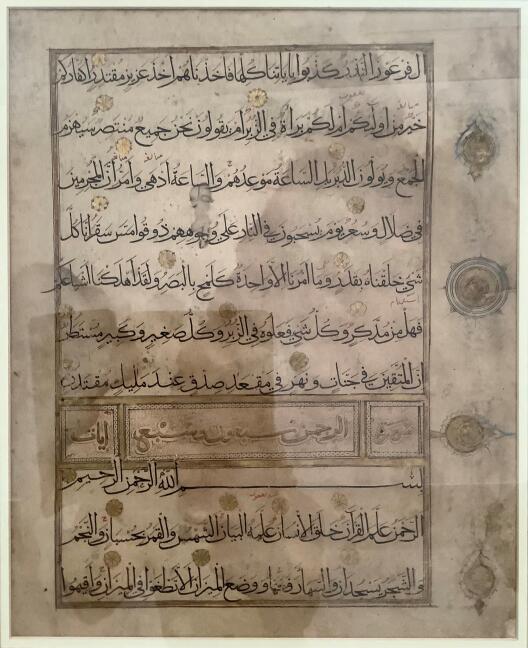 ال فرعون النذر كذبوا باياتنا كلها فاخذناهم اخذ عزيز مقتدر اكفاركم
خير من اولئكم ام لكم براة في الزبر ام يقولون نحن جميع منتصر سيهزم
الجمع ويولون الدبر بل الساعة موعدهم والساعة ادهى وامر ان المجرمين
في ضلال وسعر يوم يسحبون في النار على وجوههم ذوقوا مس سقر انا كل
شي خلقناه بقدر وما امرنا الا واحدة كلمح بالبصر ولقد اهلكنا اشياعكم
فهل من مدكر وكل شي فعلوه في الزبر وكل صغير وكبير مستطر
ان المتقين في جنات ونهر في مقعد صدق عند مليك مقتدر
سورة الرحمن سبعون وسبع ايات
بسم الله الرحمن الرحيم
الرحمن علم القران خلق الانسان علمه البيان الشمس والقمر بحسبان والنجم
والشجر يسجدان والسماء رفعها ووضع الميزان الا تطغوا في الميزان واقيموا